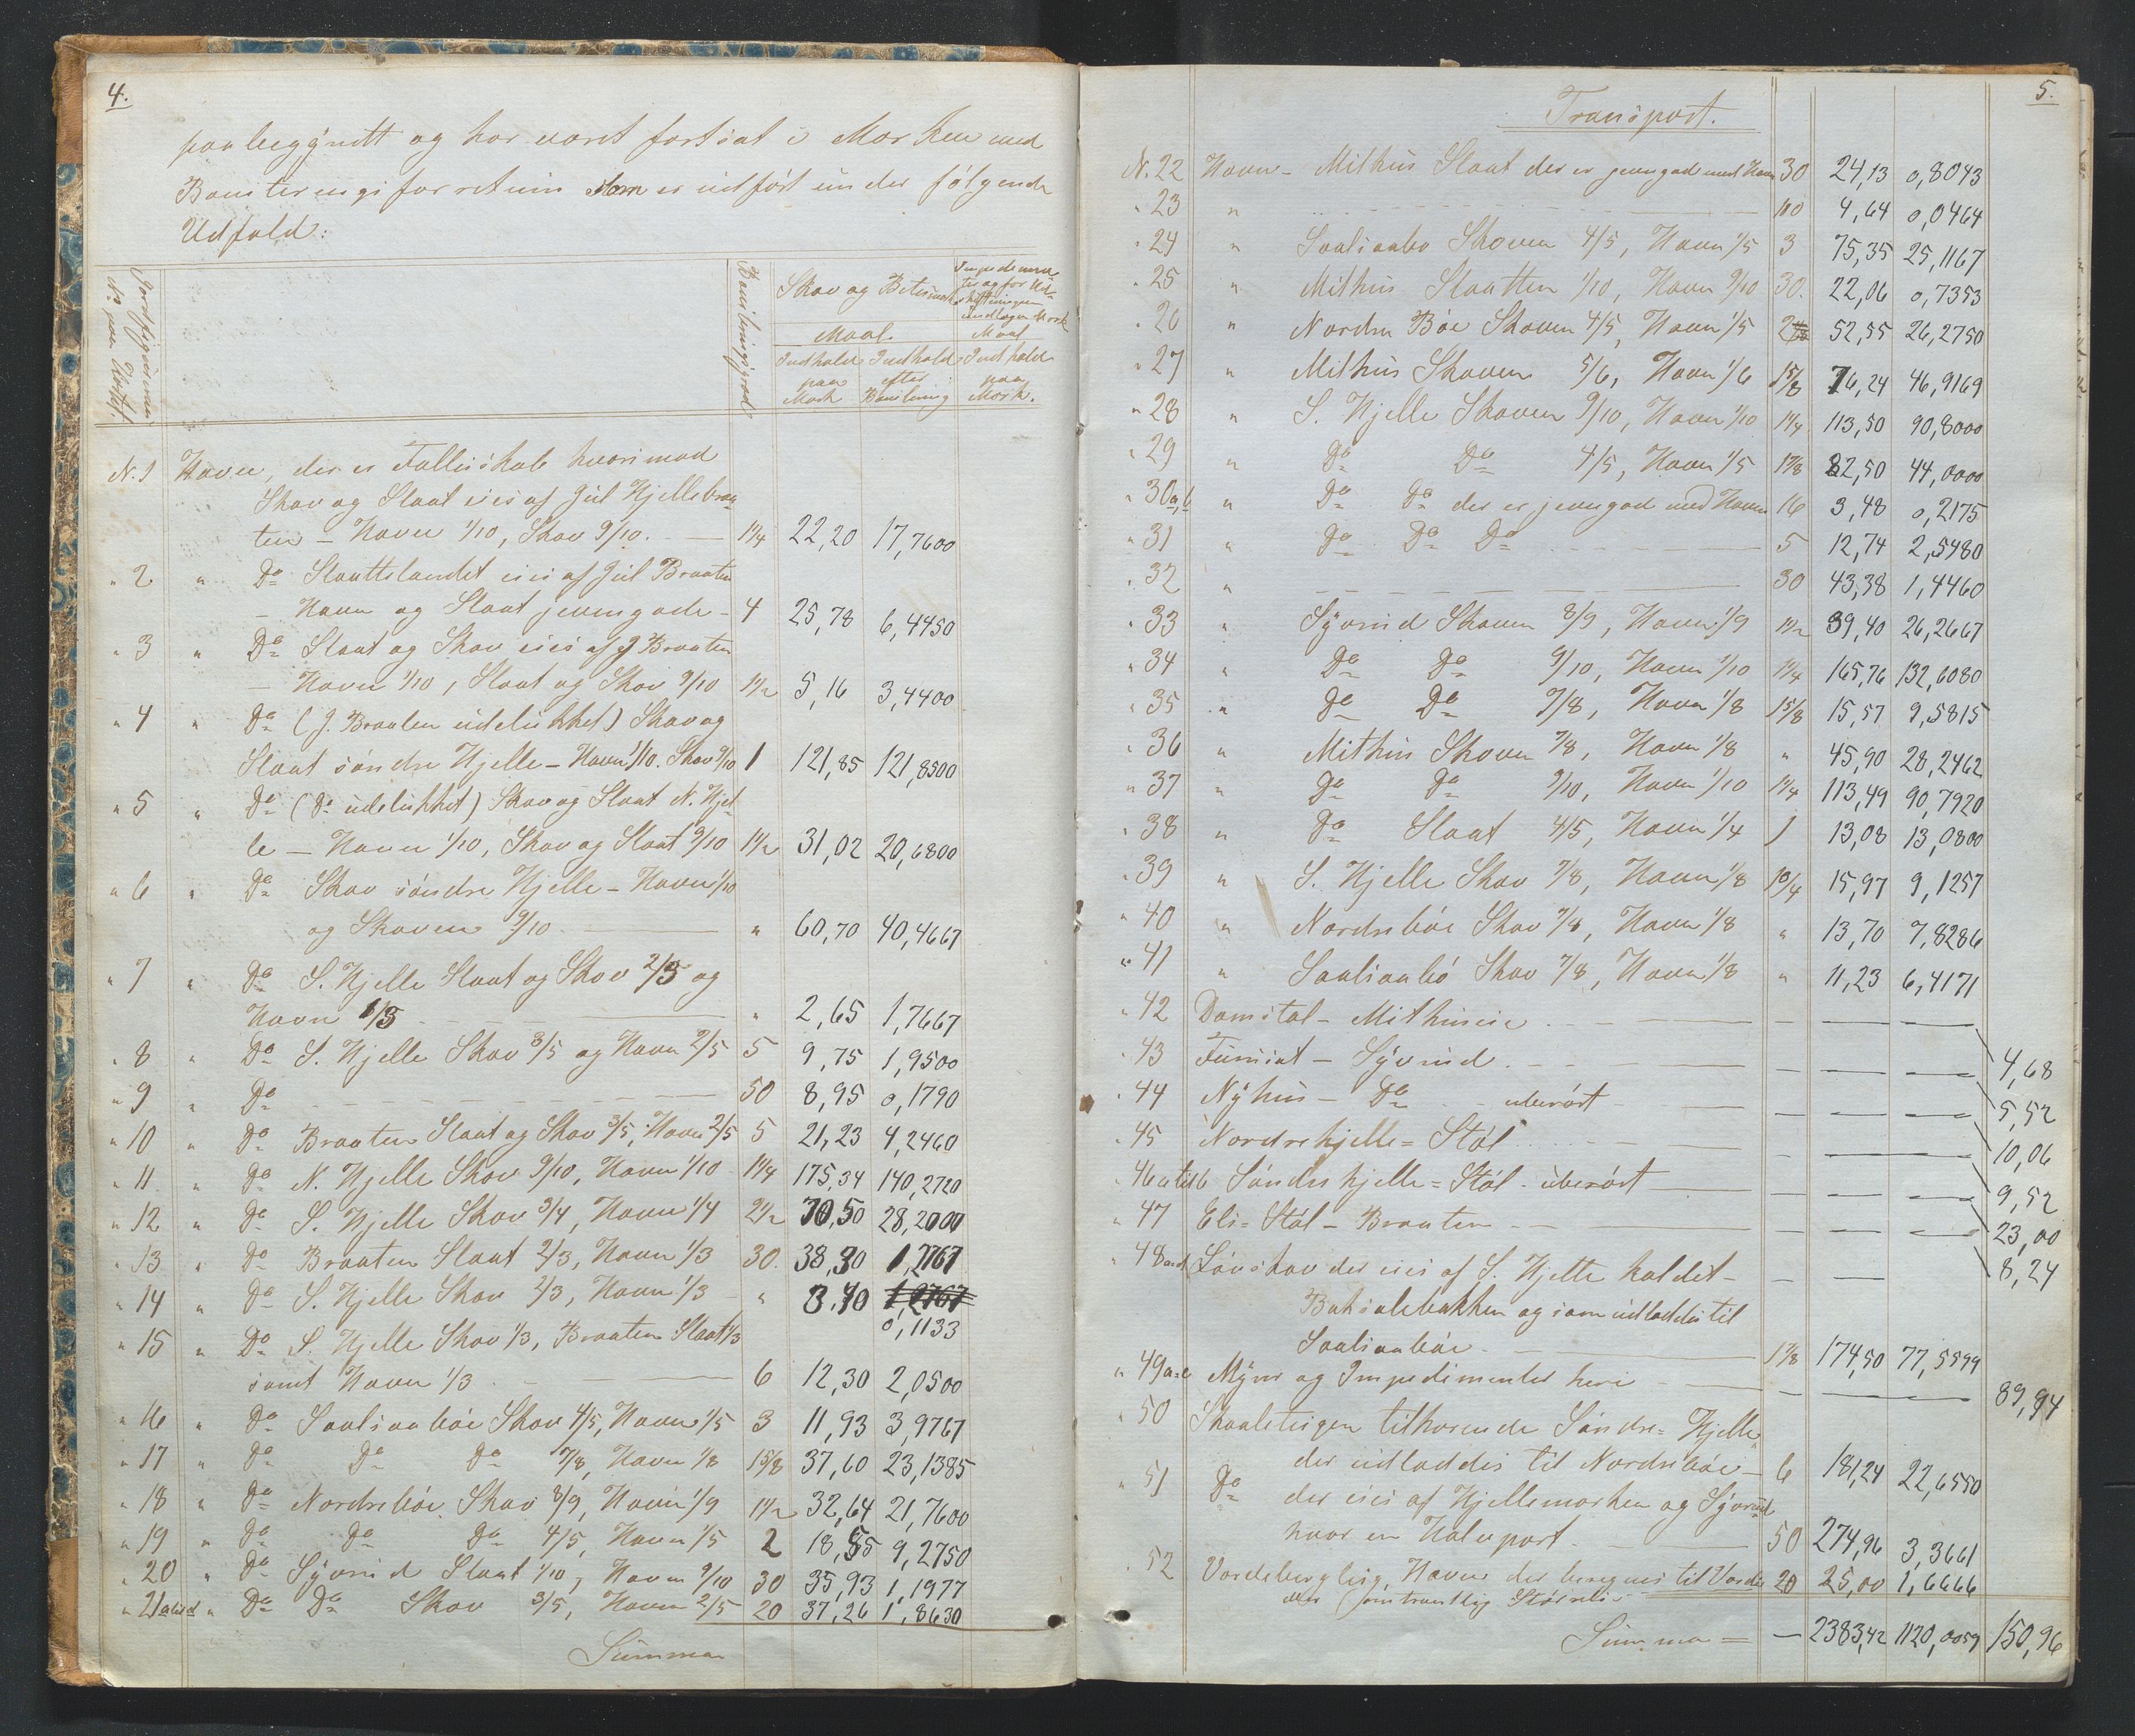 4.
paabegyndt og har været fortsat i Marken med
Boniteringsforretnin som er udført under følgende
Udfald:
Jordfigurernes No. paa Kartet.
Boniteringsgrad
Skov og Beitesmark
Maal
Indhold paa Mark
Indhold efter Bonitering
Impedimen-
ter og for Ud-
skiftningen
undtagen Mark
Maal
Indhold paa Mark.
N. 1 Havn, der er Fællesskab hvorimod
Skov og Slaat eies af Jul Hjellebraa-
ten - Havn 1/10, Skov 9/10. 1 1/4 22,20 17,7600
" 2 " Do Slaattelandet eies af Jul Braaten
- Havn og Slaat jevngode - 4 25,78 6,4450
" 3 " Do Slaat og Skov eies af J Braaten
- Havn 1/10, Slaat og Skov 9/10 1 1/2 5,16 3,4400
" 4 " Do (J. Braaten udelukket) Skov og
Slaat søndre Hjelle - Havn 1/10. Skov 9/10 1 121,85 121,8500
" 5 " Do (Do udelukket) Skov og Slaat N. Hjel-
le - Havn 1/10, Skov og Slaat 9/10 1 1/2 31,02 20,6800
" 6 " Do Skov søndre Hjelle - Havn 1/10
og Skoven 9/10 " 60,70 40,4667
" 7 " Do S. Hjelle Slaat og Skov 2/3 og
Havn 1/3 " 2,65 1,7667
" 8 " Do S. Hjelle Skov 3/5 og Havn 2/5 5 9,75 1,9500
" 9 " Do 50 8,95 0,1790
" 10 " Do Braaten Slaat og Skov 3/5, Havn 2/5 5 21,23 4,2460
" 11 " Do N. Hjelle Skov 9/10, Havn 1/10 1 1/4 175,34 140,2720
" 12 " Do S. Hjelle Skov 3/4, Havn 1/4 2 1/2 70,50 28,2000
" 13 " Do Braaten Slaat 2/3, Havn 1/3 30. 38,30 1,2767
" 14 " Do S. Hjelle Skov 2/3, Havn 1/3 " 3,40 1,2767
0,1133
" 15 " Do S. Hjelle Skov 1/3, Braaten Slaat 1/3
samt Havn 1/3 6 12,30 2,0500
" 16 " Do Saaliaabøe Skov 4/5, Havn 1/5 3 11,93 3,9767
" 17 " Do Do Do 7/8, Havn 1/8 15/8 37,60 23,1385
" 18 " Do Nordrebøe Skov 8/9, Havn 1/9 1 1/2 32,64 21,7600
" 19 " Do Do Do 4/5, Havn 1/5 2 18,55 9,2750
" 20 " Do Syvrud Slaat 1/10, Havn 9/10 30 35,93 1,1977
" 21 " Do Do Skov 3/5, Havn 2/5 20 37,26 1,8630
Summa
5.
Transport.
N. 22 Havn - Mithus Slaat der er jevngod med Havn 30 24,13 0,8043
" 23 " 100 4,64 0,0464
" 24 " Saaliaabø Skoven 4/5, Havn 1/5 3 75,35 25,1167
" 25 " Mithus Slaatten 1/10, Havn 9/10 30. 22,06 0,7353
" 26 " Nordre Bøe Skoven 4/5, Havn 1/5 2 52,55 26,2750
" 27 " Mithus Skoven 5/6, Havn 1/6 15/8 76,24 46,9169
" 28 " S. Hjelle Skoven 9/10, Havn 1/10 1 1/4 113,50 90,8000
" 29 " Do Do 4/5, Havn 1/5 1 7/8 82,50 44,0000
" 30a,b " Do Do der er jevngod med Havn 16 3,48 0,2175
" 31 " Do Do Do 5 12,74 2,5480
" 32 " 30 43,38 1,4460
" 33 " Syvrud Skoven 8/9, Havn 1/9 1 1/2 39,40 26,2667
" 34 " Do Do 9/10, Havn 1/10 1 1/4 165,76 132,6080
" 35 " Do Do 7/8, Havn 1/8 15/8 15,57 9,5815
" 36 " Mithus Skoven 7/8, Havn 1/8 " 45,90 28,2462
" 37 " Do Do 9/10, Havn 1/10 1 1/4 113,49 90,7920
" 38 " Do Slaat 4/5, Havn 1/4 1 13,08 13,0800
" 39 " S. Hjelle Skov 7/8, Havn 1/8 1 3/4 15,97 9,1257
" 40 " Nordrebøe Skov 7/8, Havn 1/8 " 13,70 7,8286
" 41 " Saaliaabø Skov 7/8, Havn 1/8 " 11,23 6,4171
" 42 Damstøl - Mithuseie 4,68
" 43 Fursæt - Syvrud 5,52
" 44 Nyhus - Do - uberørt 10,06
" 45 Nordrehjelle = Støl 9,52
" 46 a til b Søndrehjelle = Støl - uberørt 23,00
" 47 Eli = Støl - Braaten 8,24
" 48 Løvskov der eies af S. Hjelle kaldet -
bakken og som udladdes til
Saaliaabøe 1 7/8 174,50 77,5599
" 49 a-e Myrer og Impedimenter heri 89,94
" 50 Skaaleteigen tilhørende Søndre = Hjelle
der udladdes til Nordrebøe - 6 181,24 22,6550
" 51 Do der eies af Hjellemarken og Syvrud
hver en Halvpart. 50 274,96 3,3661
" 52 Vardeberglien, Havn der beregnes til Varde 20 25,00 1,6666
omtrentlig Størrelse
Summa = - 2383,42 1120,0059 150,96